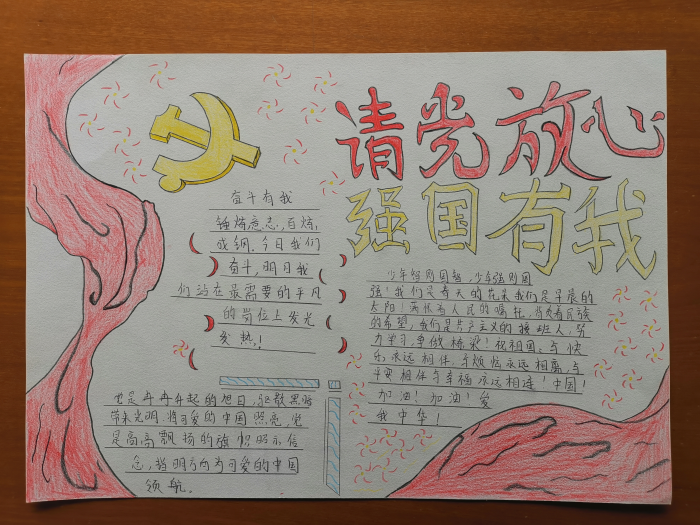 请党放心
强国有我
奋斗有我
锤炼意志,百炼
成钢,今日我们
奋斗,明日我
们站在最需要的平凡
的岗位上发光
发热!
少年智则国智,少年强则国
强!我们是春天的花朵我们是早晨的
太阳!满怀着人民的嘱托,背负着民族
的希望,我们是共产主义的接班人,努
力学习,争做栋梁!祝祖国:与快
乐永远相伴,与烦恼永远相离,与
平安相伴与幸福永远相连!中国!
加油!加油!爱
我中华!
也是冉冉升起的旭日,驱散黑暗
带来光明,将可爱的中国照亮,党
是高高飘扬的旗帜昭示信
念,指明方向为可爱的中国
领航.